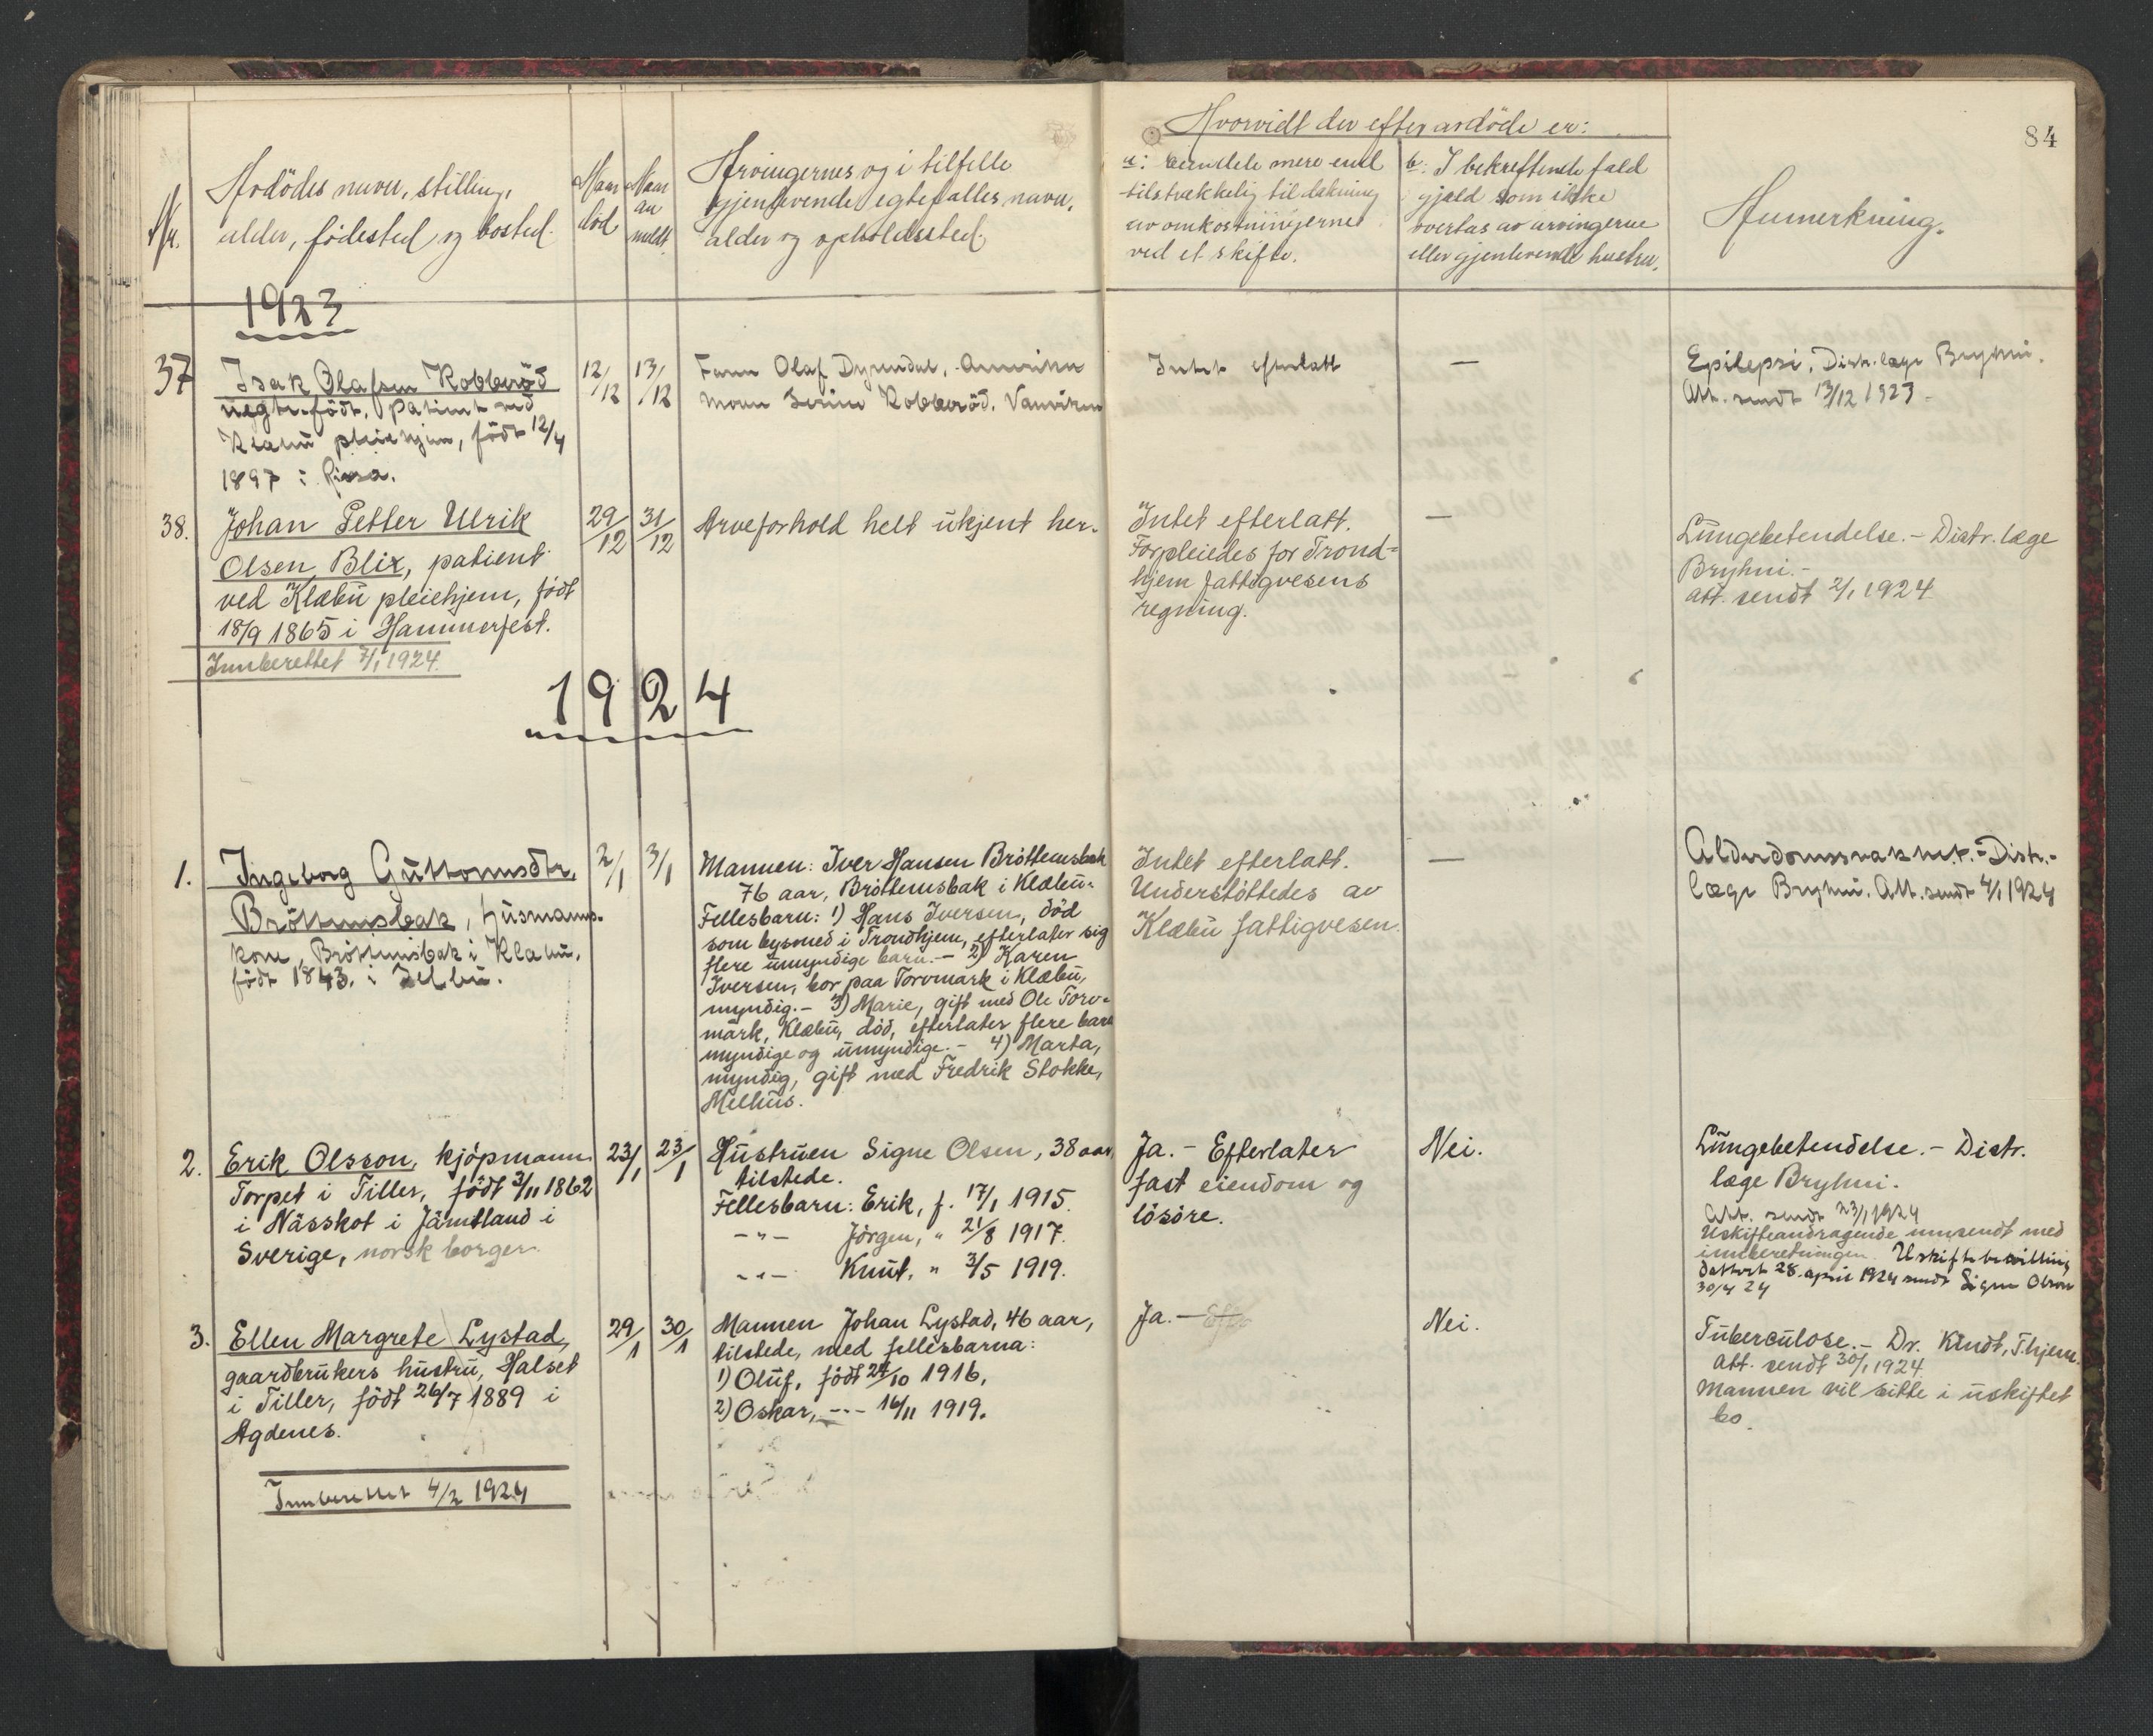 84
Hvorvidt der efter avdöde er:
Nr.
Avdödes navn, stilling,
alder, födested og bosted.
Naar
död
Naar
an
meldt.
Arvingernes og i tilfelle
gjenlevende egtefælles navn,
alder og opholdssted.
a: eiendele mere end
tilstrækkelig til dækning
av omkostningerne
ved et skifte.
b: I bekreftende fald
gjæld som ikke
overtas av arvingerne
eller gjenlevende hustru.
Anmerkning.
1923
37
Isak Olafsen Kobberöd
uegte födt, patient ved
Klæbu pleiehjem, födt 12/4
1897 i Rissa.
12/12
13/12
Faren Olaf Dyrendal, Amerika
Moren Serine Kobberöd, Vanvikan
Intet efterlatt
—
Epilepsi. Distr.læge Bryhni.
Att. sendt 13/12 1923 -
38.
Johan Petter Ulrik
Olsen Blix, patient
ved Klæbu pleiehjem, födt
18/9 1865 i Hammerfest.
Innberettet 7/1 1924.
29/12
31/12
Arveforhold helt ukjent her.
Intet efterlatt.
Forpleiedes for Trond=
hjem fattigvesens
regning.
—
Lungebetendelse. - Distr. læge
Bryhni. -
att. sendt 2/1 1924.
1924
1.
Ingeborg Guttormsdtr.
Bröttemsbak, husmanns-
kone, Bröttemsbak i Klæbu,
födt 1843 i Selbu.
2/1
3/1
Mannen: Iver Hansen Bröttemsbak
76 aar, Bröttemsbak i Klæbu.
Fellesbarn: 1) Hans Iversen, död
som bysmed i Trondhjem, efterlater sig
flere umyndige barn. - 2) Karen
Iversen, bor paa Torvmark i Klæbu,
myndig. - 3) Marie, gift med Ole Torv=
mark, Klæbu, död, efterlater flere barn
myndige og umyndige. - 4) Marta,
myndig, gift med Fredrik Stokke,
Melhus.
Intet efterlatt.
Understöttedes av
Klæbu fattigvesen.
—
Alderdomssvakhet. - Distr.-
læge Bryhni. Att. sendt 4/1 1924
2.
Erik Olsson, kjöpmann
Torpet i Tiller, födt 3/11 1862
i Nässkot i Jämtland i
Sverige, norsk borger.
23/1
23/1
Hustruen Signe Olsen, 38 aar,
tilstede.
Fellesbarn: Erik, f. 17/1 1915.
-"- Jörgen, " 21/8 1917.
-"- Knut, " 3/5 1919.
Ja. - Efterlater
fast eiendom og
lösöre.
Nei.
Lungebetendelse. - Distr.
læge Bryhni.
Att. sendt 23/1 1924
Uskifteandragende innsendt med
innberetningen. Uskiftebevilling
dattert 28. april 1924 sendt Signe Olsson
30/4 24
3.
Ellen Margrete Lystad,
gaardbrukers hustru, Halset
i Tiller, födt 26/7 1889 i
Agdenes.
29/1
30/1
Mannen Johan Lystad, 46 aar,
tilstede, med fellesbarna:
1) Oluf, födt 24/10 1916,
2) Oskar, -"- 16/11 1919.
Ja. - Efter
Nei.
Tuberculose. - Dr. Kindt, T.hjem.
att. sendt 30/1 1924.
Mannen vil sitte i uskiftet
bo.
Innberettet 4/2 1924